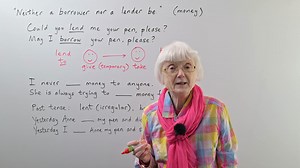 "Neither a borrower nor a lender be" (money)
Could you lend me your pen, please?
May I borrow your pen, please?
lend
give (temporary) take
I never ___ money to anyone.
She is always trying to ___ money
Past tense: lent (irregular),
Yesterday Anne ___ my pen and
Yesterday I ___ Anne my pen and